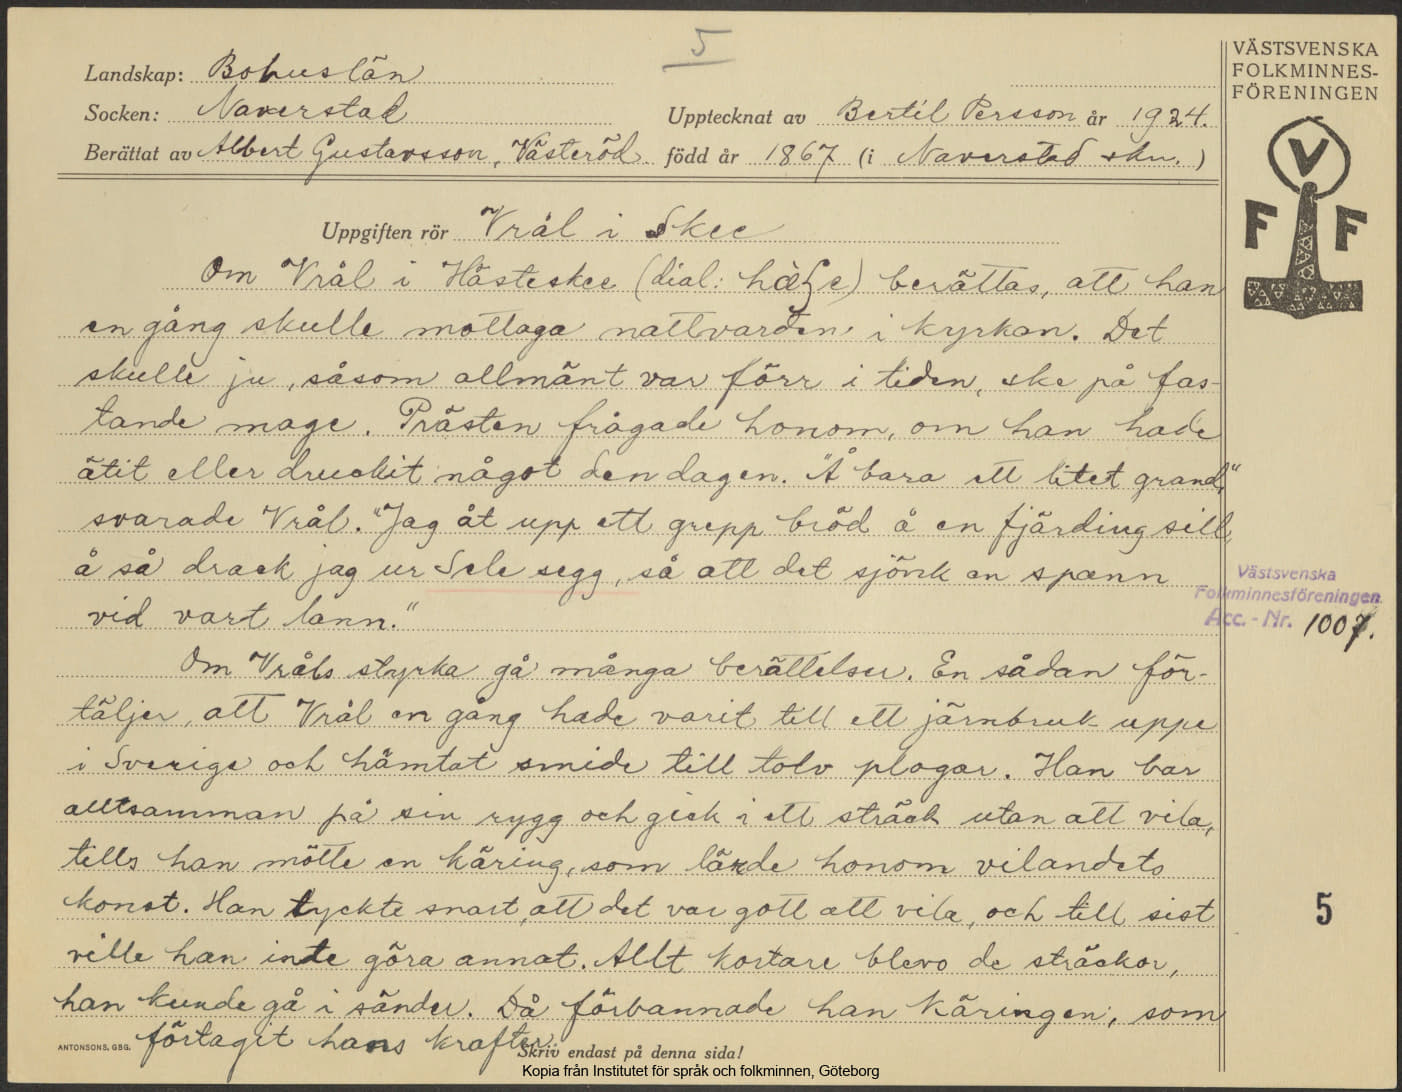 5
Landskap: Bohuslän
Socken: Naverstad
Upptecknat av Bertil Persson år 1924.
Berättat av Albert Gustavsson, Västeröd född år 1867 (i Naverstad skn.)
VÄSTSVENSKA
FOLKMINNES-
FÖRENINGEN
V
F F
Uppgiften rör Vrål i Skee
Om Vrål i Hästeskee (dial: ) berättas, att han
en gång skulle mottaga nattvarden i kyrkan. Det
skulle ju, såsom allmänt var förr i tiden, ske på fas-
tande mage. Prästen frågade honom, om han hade
ätit eller druckit något den dagen. "Å bara ett litet grand,"
svarade Vrål. "Jag åt upp ett grepp bröd å en fjärding sill,
å så drack jag ur Sele segg, så att det sjönk en spann
vid vart lann."
Om Vråls styrka gå många berättelser. En sådan för-
täljer, att Vrål en gång hade varit till ett järnbruk uppe
i Sverige och hämtat smide till tolv plogar. Han bar
alltsamman på sin rygg och gick i ett sträck utan att vila,
tills han mötte en käring, som lärde honom vilandets
konst. Han tyckte snart, att det var gott att vila, och till sist
ville han inte göra annat. Allt kortare blevo de sträckor,
han kunde gå i sänder. Då förbannade han käringen, som
förtagit hans krafter.
Västsvenska
Folkminnesföreningen
Acc.-Nr. 1007.
5
ANTONSONS, GBG.
Skriv endast på denna sida!
Kopia från Institutet för språk och folkminnen, Göteborg